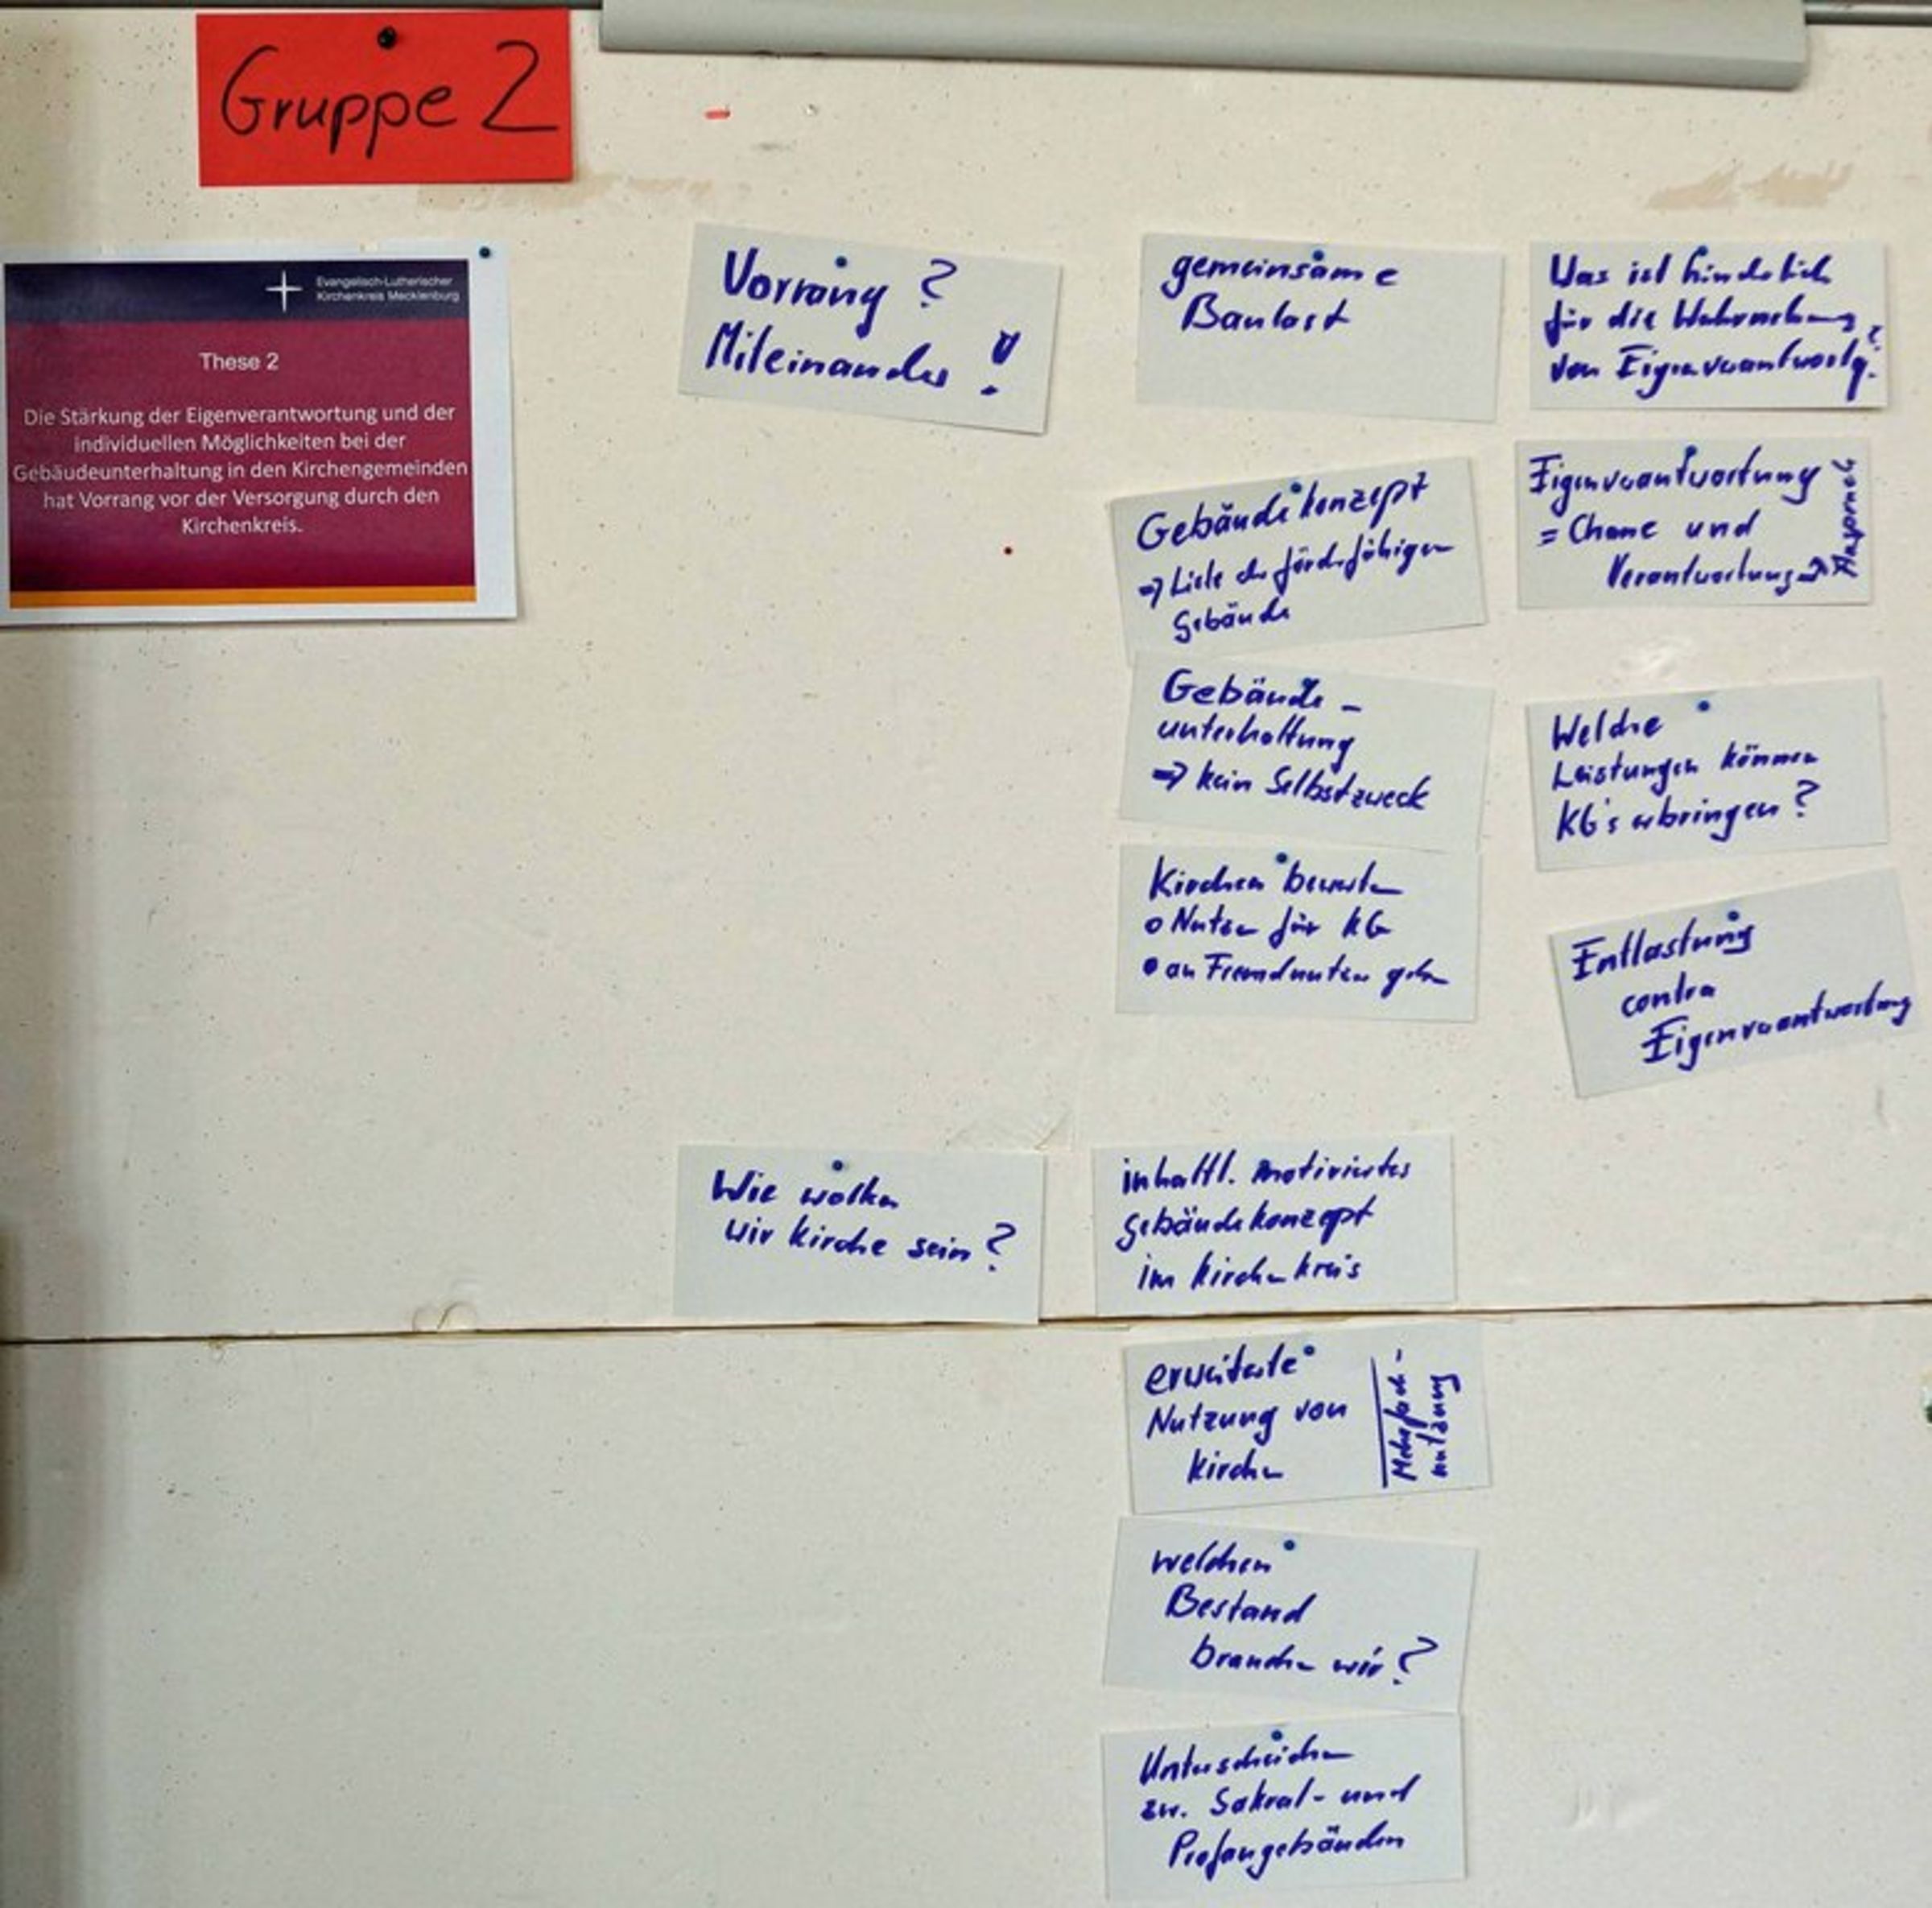 Gruppe 2
Evangelisch-Lutherischer
Kirchenkreis Mecklenburg
These 2
Die Stärkung der Eigenverantwortung und der
individuellen Möglichkeiten bei der
Gebäudeunterhaltung in den Kirchengemeinden
hat Vorrang vor der Versorgung durch den
Kirchenkreis.
Vorrang ?
Miteinander !
Wie wollen
wir Kirche sein ?
gemeinsame
Baulast
Gebäudekonzept
⇒ Liste der förderfähigen
Gebäude
Gebäude -
unterhaltung
⇒ kein Selbstzweck
Kirchen bewerten
o Nutzen für KG
• an Fremdnutzer geben
inhaltl. motiviertes
Gebäudekonzept
im Kirchenkreis
erweiterte
Nutzung von
Kirchen
Mehrfach-
nutzung
welchen
Bestand
brauchen wir ?
Unterscheiden
zw. Sakral- und
Profangebäuden
Was ist hinderlich
für die Wahrnehmung
von Eigenverantwortg. ?
Eigenverantwortung
= Chance und
Verantwortung ⇒
Anspruch
Welche
Leistungen können
KG's erbringen ?
Entlastung
contra
Eigenverantwortung